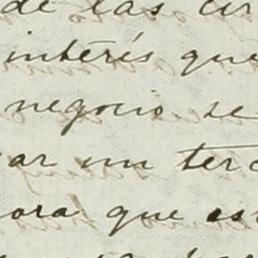 de las cir
interés que
negocio se
ar un terc
ora que es